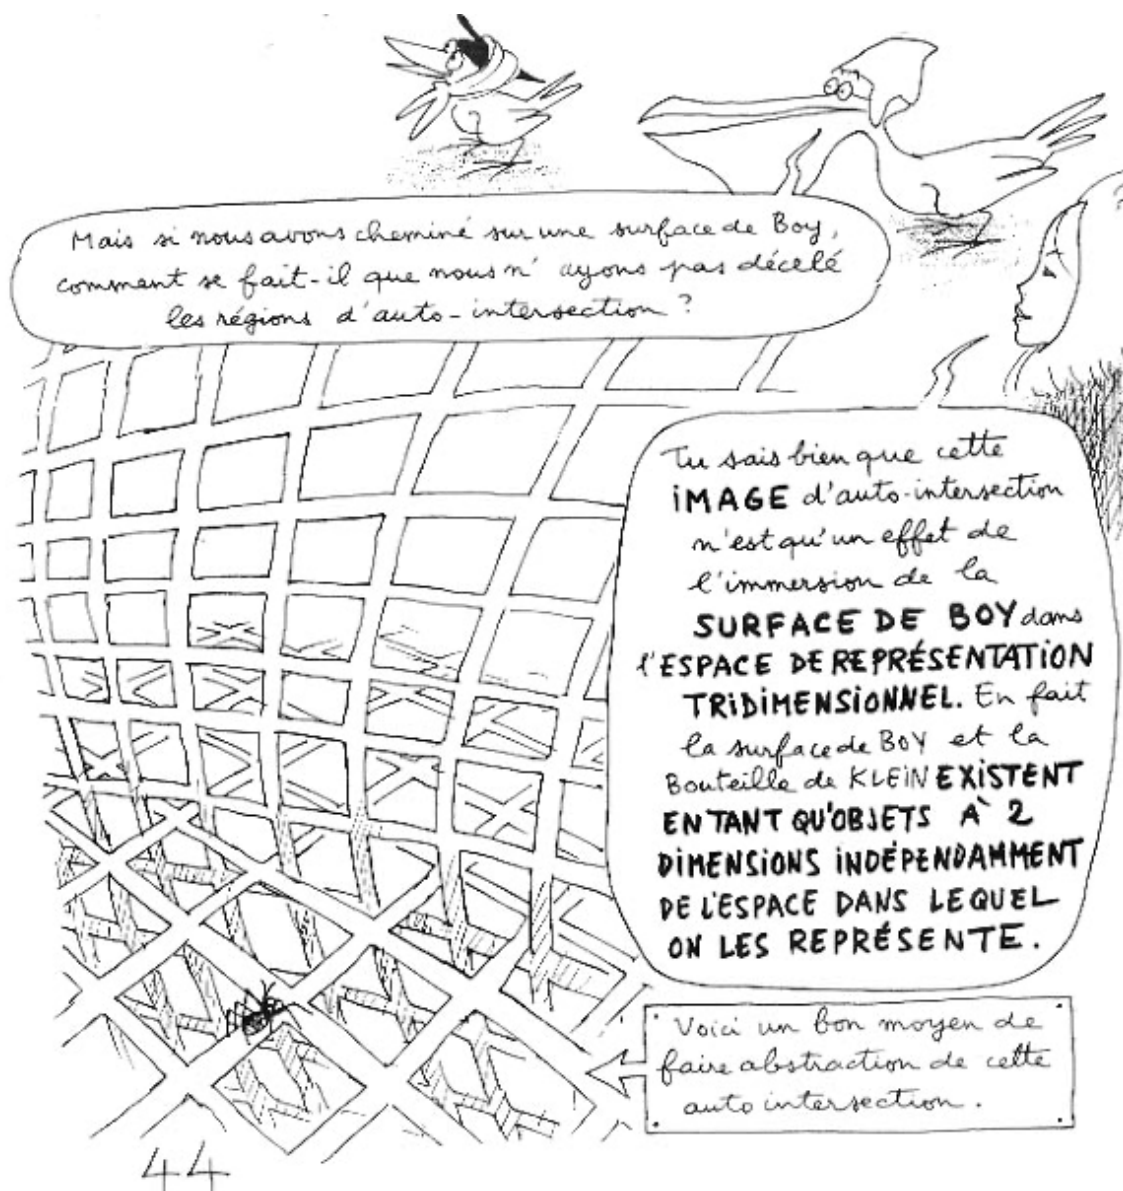 Mais si nous avons cheminé sur une surface de Boy,
comment se fait-il que nous n'ayons pas décelé
les régions d'auto-intersection ?
?
Tu sais bien que cette
IMAGE d'auto-intersection
n'est qu'un effet de
l'immersion de la
SURFACE DE BOY dans
l'ESPACE DE REPRÉSENTATION
TRIDIMENSIONNEL. En fait
la surface de BOY et la
Bouteille de KLEIN EXISTENT
EN TANT QU'OBJETS À 2
DIMENSIONS INDÉPENDAMMENT
DE L'ESPACE DANS LEQUEL
ON LES REPRÉSENTE.
Voici un bon moyen de
faire abstraction de cette
auto intersection.
44